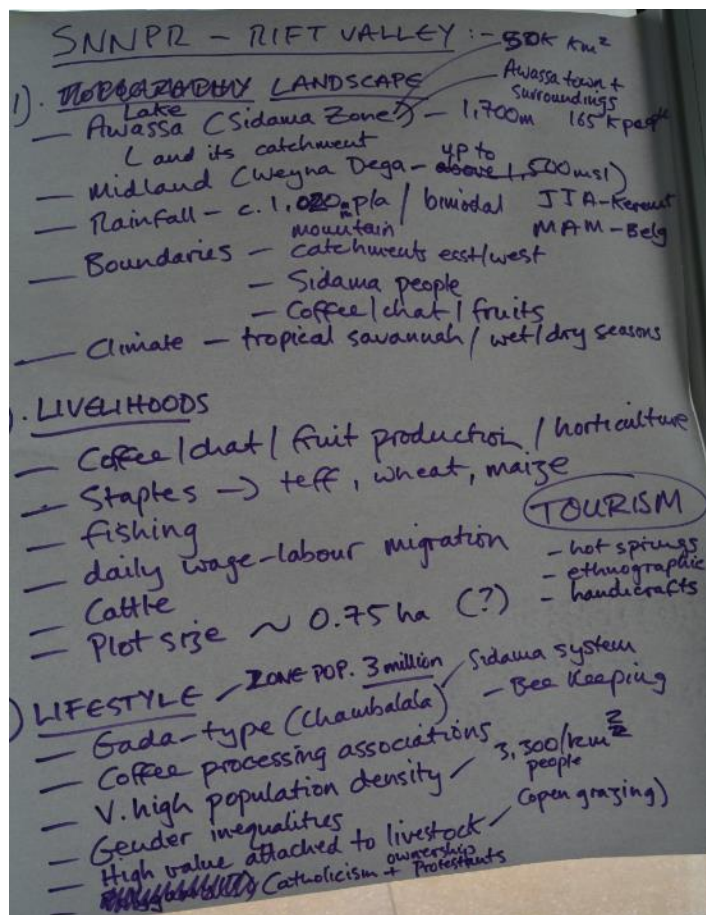 SNNPR – RIFT VALLEY :- 50K km²
1). LANDSCAPE
Awassa town + surroundings
165 K people
— Lake Awassa (Sidama Zone) – 1,700m
( and its catchment
— Midland (Weyna Dega – up to 1,500msl)
— Rainfall – c. 1,020 pla / bimodal JJA-Keremt
MAM – Belg
— Boundaries – mountain catchments east/west
– Sidama people
– Coffee / chat / fruits
— Climate – tropical savannah / wet/dry seasons
). LIVELIHOODS
— Coffee / chat / fruit production / horticulture
— Staples → teff, wheat, maize
— fishing
— daily wage-labour migration
— Cattle
— Plot size ~ 0.75 ha (?)
TOURISM
– hot springs
– ethnographic
– handicrafts
) LIFESTYLE – ZONE POP. 3 million
— Gada-type (Chambalala) Sidama system
– Bee Keeping
— Coffee processing associations
— V. high population density – 3,300/km² people
— Gender inequalities
— High value attached to livestock ownership – (open grazing)
— Catholicism + Protestants